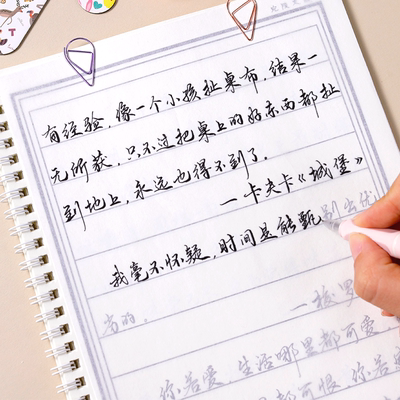 有经验，像一个小孩扯桌布，结果一
无所获，只不过把桌上的好东西都扯
到地上，永远也得不到了。
—卡夫卡《城堡》
我毫不怀疑，时间是能甄别出优
劣的。
你若爱，生活哪里都可爱，